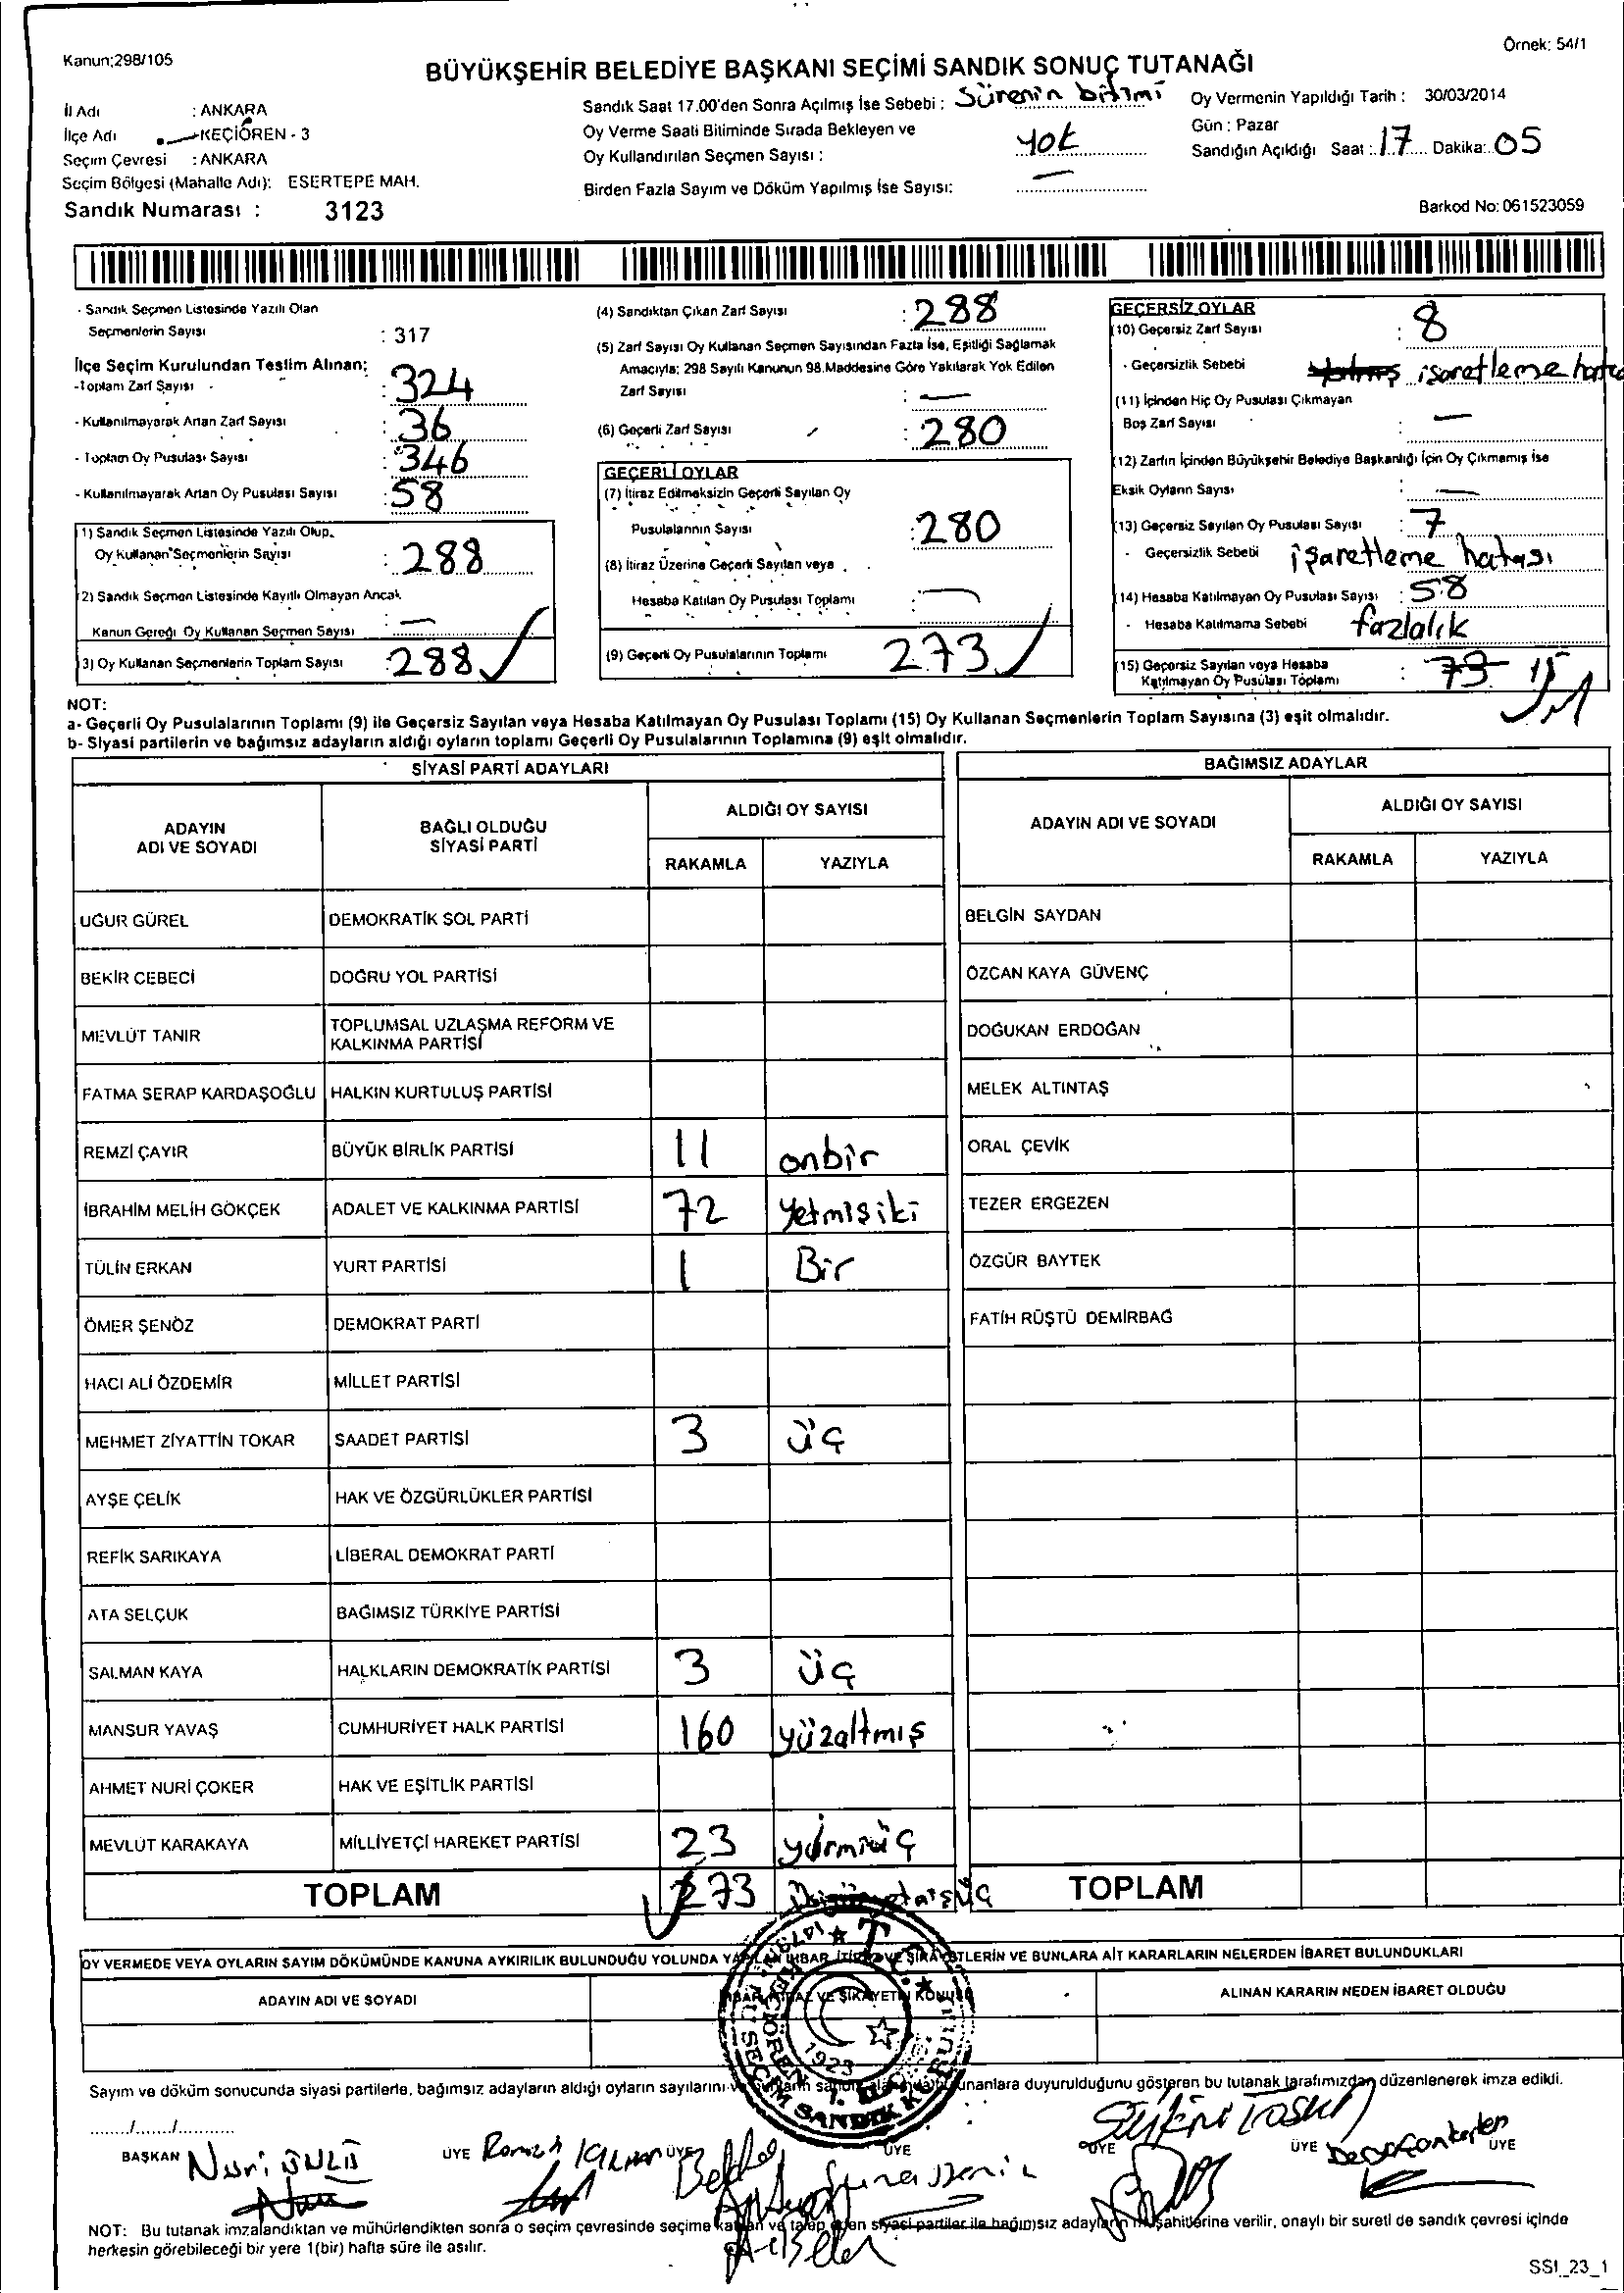 Kanun;298/105
Örnek: 54/1
BÜYÜKŞEHİR BELEDİYE BAŞKANI SEÇİMİ SANDIK SONUÇ TUTANAĞI
İl Adı : ANKARA
İlçe Adı KEÇİÖREN - 3
Seçim Çevresi : ANKARA
Seçim Bölgesi (Mahalle Adı): ESERTEPE MAH.
Sandık Numarası : 3123
Sandık Saat 17.00'den Sonra Açılmış İse Sebebi : Sürenin bitimi
Oy Verme Saati Bitiminde Sırada Bekleyen ve
Oy Kullandırılan Seçmen Sayısı : yok
Birden Fazla Sayım ve Döküm Yapılmış İse Sayısı: —
Oy Vermenin Yapıldığı Tarih : 30/03/2014
Gün : Pazar
Sandığın Açıldığı Saat : 17 Dakika: 05
Barkod No: 061523059
- Sandık Seçmen Listesinde Yazılı Olan
Seçmenlerin Sayısı : 317
İlçe Seçim Kurulundan Teslim Alınan;
- Toplam Zarf Sayısı : 324
- Kullanılmayarak Artan Zarf Sayısı : 36
- Toplam Oy Pusulası Sayısı : 346
- Kullanılmayarak Artan Oy Pusulası Sayısı : 58
1) Sandık Seçmen Listesinde Yazılı Olup,
Oy Kullanan Seçmenlerin Sayısı : 288
2) Sandık Seçmen Listesinde Kayıtlı Olmayan Ancak
Kanun Gereği Oy Kullanan Seçmen Sayısı : —
3) Oy Kullanan Seçmenlerin Toplam Sayısı : 288
(4) Sandıktan Çıkan Zarf Sayısı : 288
(5) Zarf Sayısı Oy Kullanan Seçmen Sayısından Fazla İse, Eşitliği Sağlamak
Amacıyla; 298 Sayılı Kanunun 98.Maddesine Göre Yakılarak Yok Edilen
Zarf Sayısı : —
(6) Geçerli Zarf Sayısı : 280
GEÇERLİ OYLAR
(7) İtiraz Edilmeksizin Geçerli Sayılan Oy
Pusulalarının Sayısı : 280
(8) İtiraz Üzerine Geçerli Sayılan veya
Hesaba Katılan Oy Pusulası Toplamı : —
(9) Geçerli Oy Pusulalarının Toplamı 273
GEÇERSİZ OYLAR
(10) Geçersiz Zarf Sayısı : 8
- Geçersizlik Sebebi işaretleme hatası
(11) İçinden Hiç Oy Pusulası Çıkmayan
Boş Zarf Sayısı : —
(12) Zarfın İçinden Büyükşehir Belediye Başkanlığı İçin Oy Çıkmamış İse
Eksik Oyların Sayısı : —
(13) Geçersiz Sayılan Oy Pusulası Sayısı : 7
- Geçersizlik Sebebi işaretleme hatası
(14) Hesaba Katılmayan Oy Pusulası Sayısı : 58
- Hesaba Katılmama Sebebi fazlalık
(15) Geçersiz Sayılan veya Hesaba
Katılmayan Oy Pusulası Toplamı : 73 15
NOT:
a- Geçerli Oy Pusulalarının Toplamı (9) ile Geçersiz Sayılan veya Hesaba Katılmayan Oy Pusulası Toplamı (15) Oy Kullanan Seçmenlerin Toplam Sayısına (3) eşit olmalıdır.
b- Siyasi partilerin ve bağımsız adayların aldığı oyların toplamı Geçerli Oy Pusulalarının Toplamına (9) eşit olmalıdır.
SİYASİ PARTİ ADAYLARI
ADAYIN ADI VE SOYADI
BAĞLI OLDUĞU SİYASİ PARTİ
ALDIĞI OY SAYISI
RAKAMLA YAZIYLA
UĞUR GÜREL DEMOKRATİK SOL PARTİ
BEKİR CEBECİ DOĞRU YOL PARTİSİ
MEVLÜT TANIR TOPLUMSAL UZLAŞMA REFORM VE KALKINMA PARTİSİ
FATMA SERAP KARDAŞOĞLU HALKIN KURTULUŞ PARTİSİ
REMZİ ÇAYIR BÜYÜK BİRLİK PARTİSİ 11 onbir
İBRAHİM MELİH GÖKÇEK ADALET VE KALKINMA PARTİSİ 72 yetmişiki
TÜLİN ERKAN YURT PARTİSİ 1 Bir
ÖMER ŞENÖZ DEMOKRAT PARTİ
HACI ALİ ÖZDEMİR MİLLET PARTİSİ
MEHMET ZİYATTİN TOKAR SAADET PARTİSİ 3 üç
AYŞE ÇELİK HAK VE ÖZGÜRLÜKLER PARTİSİ
REFİK SARIKAYA LİBERAL DEMOKRAT PARTİ
ATA SELÇUK BAĞIMSIZ TÜRKİYE PARTİSİ
SALMAN KAYA HALKLARIN DEMOKRATİK PARTİSİ 3 üç
MANSUR YAVAŞ CUMHURİYET HALK PARTİSİ 160 yüzaltmış
AHMET NURİ ÇOKER HAK VE EŞİTLİK PARTİSİ
MEVLÜT KARAKAYA MİLLİYETÇİ HAREKET PARTİSİ 23 yirmiüç
TOPLAM 273
BAĞIMSIZ ADAYLAR
ADAYIN ADI VE SOYADI
ALDIĞI OY SAYISI
RAKAMLA YAZIYLA
BELGİN SAYDAN
ÖZCAN KAYA GÜVENÇ
DOĞUKAN ERDOĞAN
MELEK ALTINTAŞ
ORAL ÇEVİK
TEZER ERGEZEN
ÖZGÜR BAYTEK
FATİH RÜŞTÜ DEMİRBAĞ
TOPLAM
OY VERMEDE VEYA OYLARIN SAYIM DÖKÜMÜNDE KANUNA AYKIRILIK BULUNDUĞU YOLUNDA YAPILAN İHBAR İTİRAZ VE ŞİKAYETLERİN VE BUNLARA AİT KARARLARIN NELERDEN İBARET BULUNDUKLARI
ADAYIN ADI VE SOYADI
İHBAR İTİRAZ VE ŞİKAYETİN KONUSU
ALINAN KARARIN NEDEN İBARET OLDUĞU
1923
Sayım ve döküm sonucunda siyasi partilerle, bağımsız adayların aldığı oyların sayılarını duyurulduğunu gösteren bu tutanak tarafımızdan düzenlenerek imza edildi.
...../...../...........
BAŞKAN Nuri ÜNLÜ ÜYE ÜYE ÜYE ÜYE ÜYE ÜYE
NOT: Bu tutanak imzalandıktan ve mühürlendikten sonra o seçim çevresinde seçime katılan ve talep eden siyasi partiler ile bağımsız adayların müşahitlerine verilir, onaylı bir sureti de sandık çevresi içinde
herkesin görebileceği bir yere 1(bir) hafta süre ile asılır.
SSI_23_1